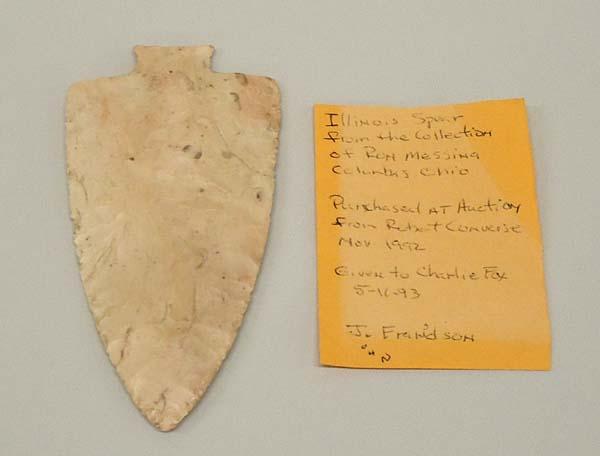 Illinois Spear
from the Collection
of Ron Messina
Columbus Ohio
Purchased AT Auction
from Robert Converse
Nov 1992
Given to Charlie Fox
5-16-93
J.